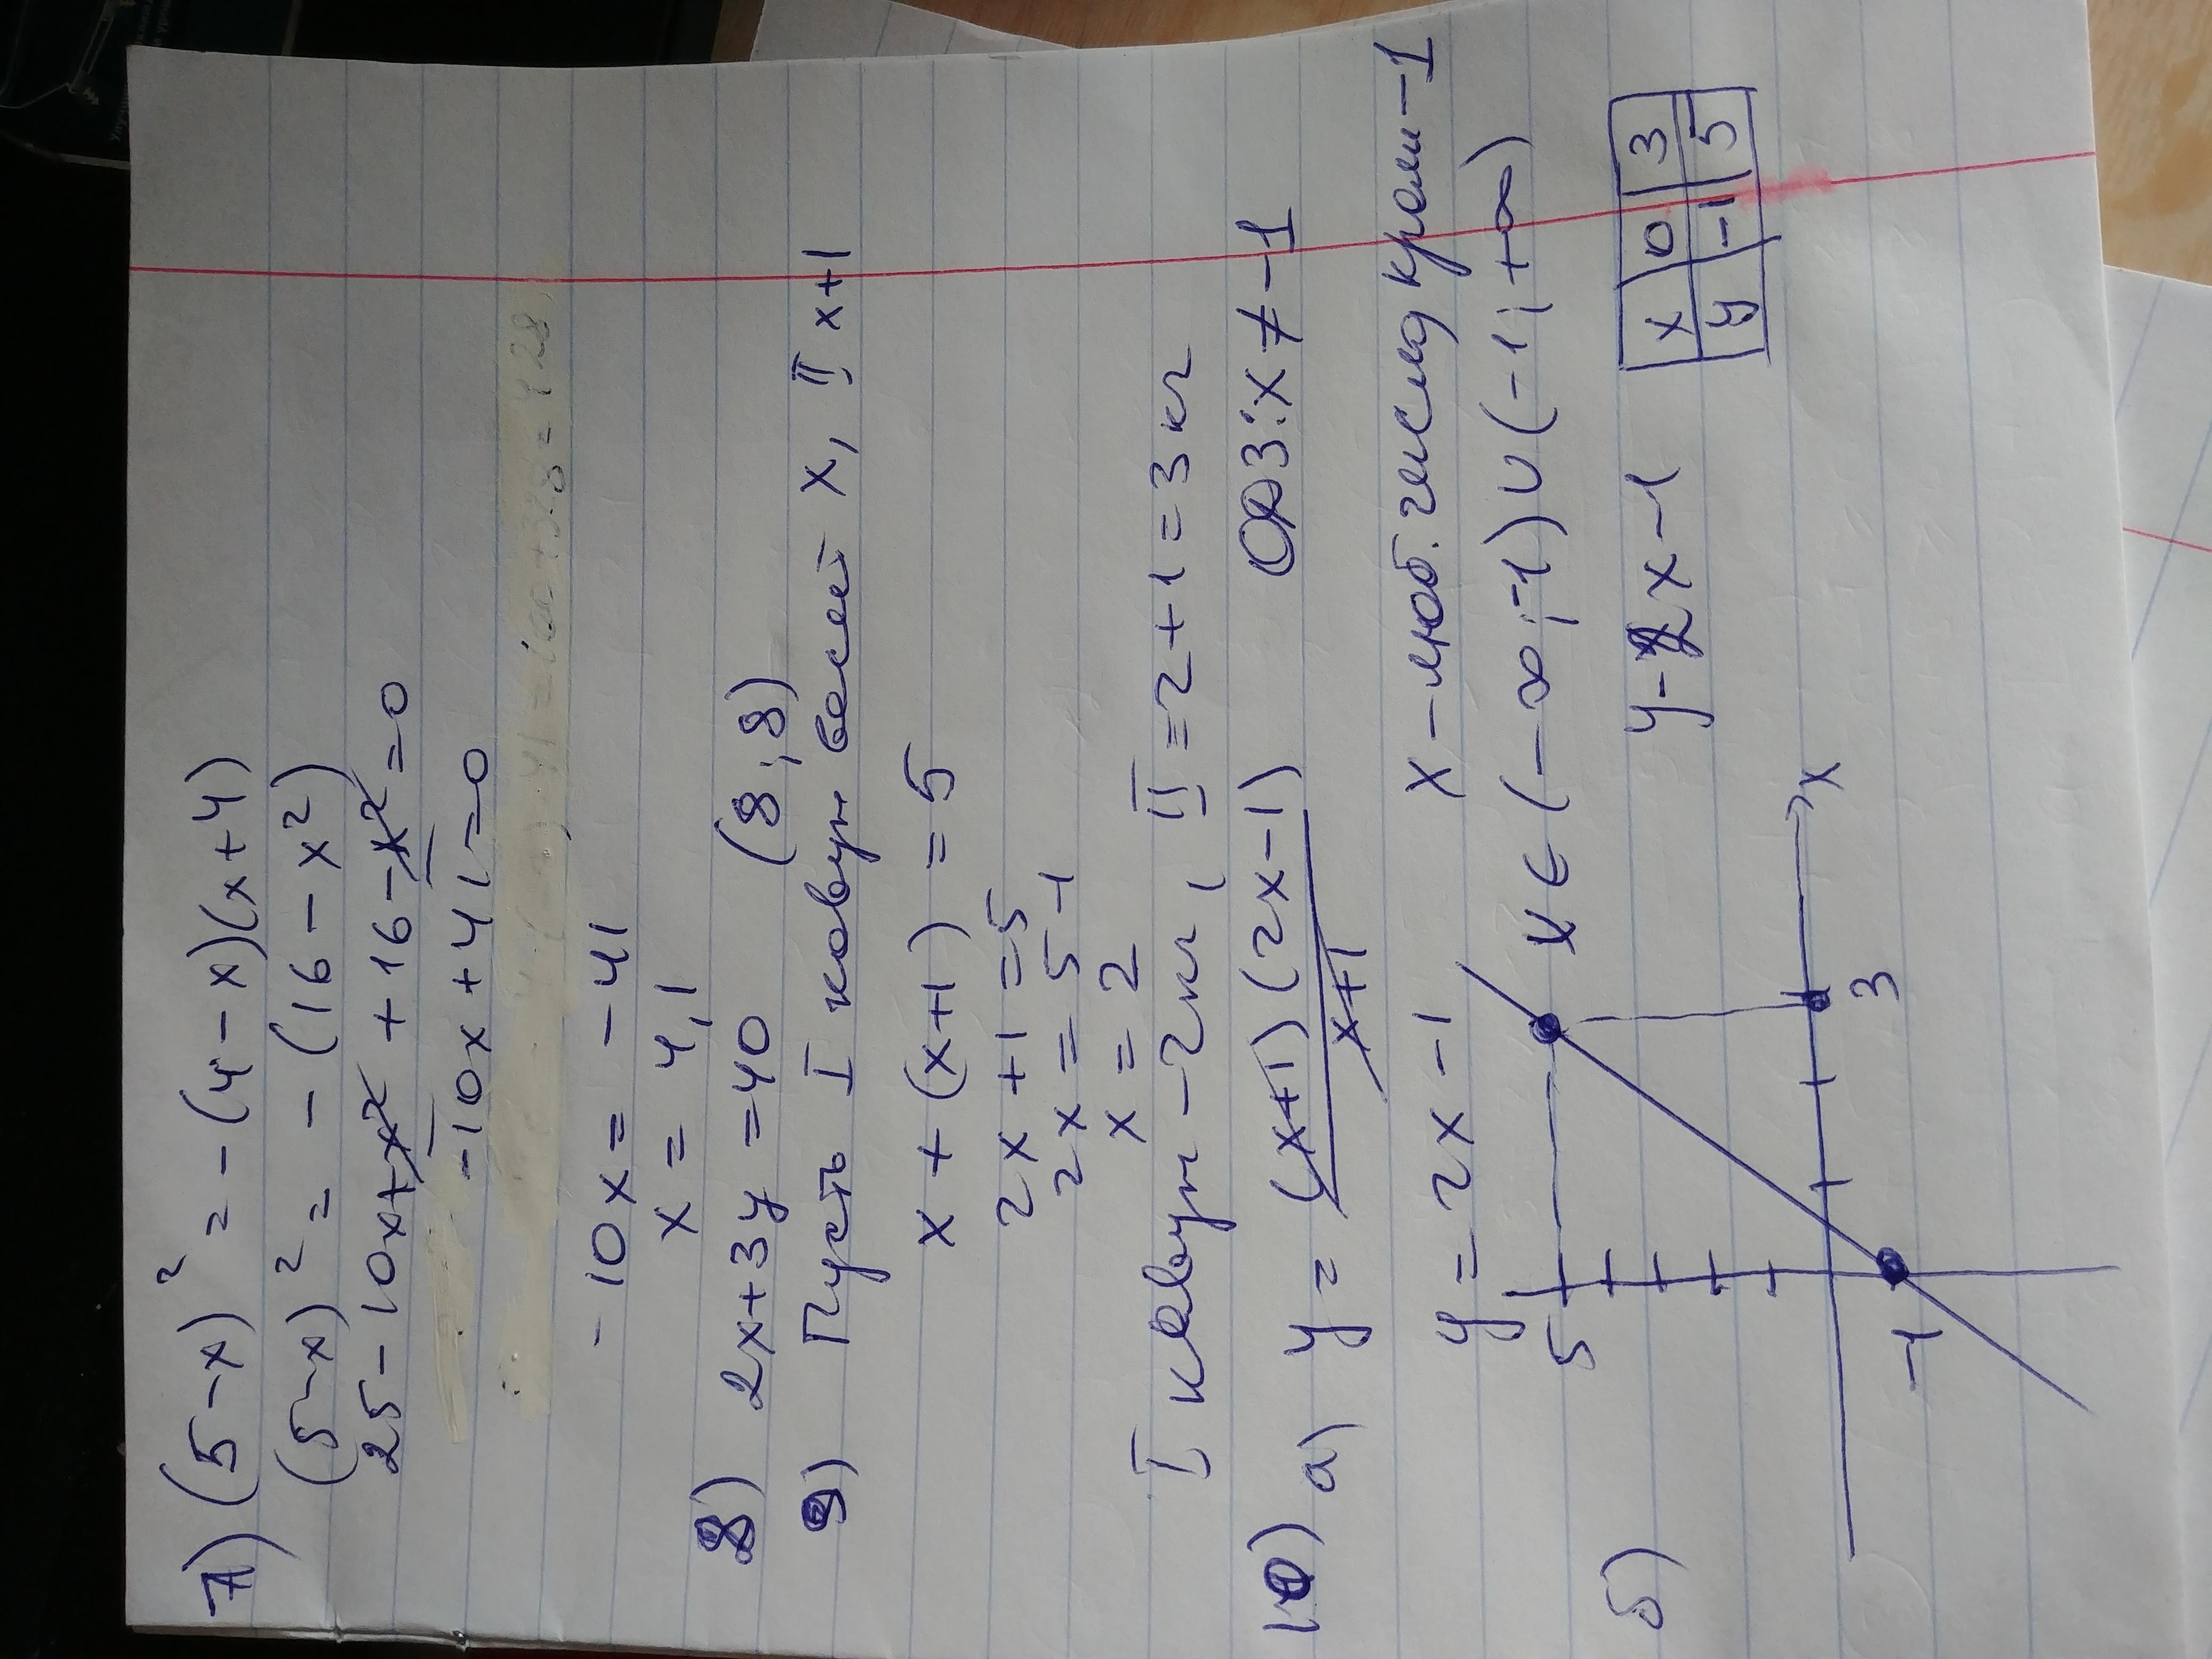 7) (5-x)² = -(4-x)(x+4)
(5-x)² = -(16-x²)
25-10x+x²+16-x²=0
-10x+41=0
-10x=-41
x=4,1
8) 2x+3y=40 (8;8)
9) Пусть I кавун весит x, II x+1
x+(x+1)=5
2x+1=5
2x=5-1
x=2
I кавун-2кг, II=2+1=3кг
10) а) y=(x+1)(2x-1)/x+1 ОДЗ: x≠-1
y=2x-1 x-люб. число кроме-1
x∈(-∞;-1)∪(-1;+∞)
б) y=2x-1
x 0 3
y -1 5
y
5
x
3
-1